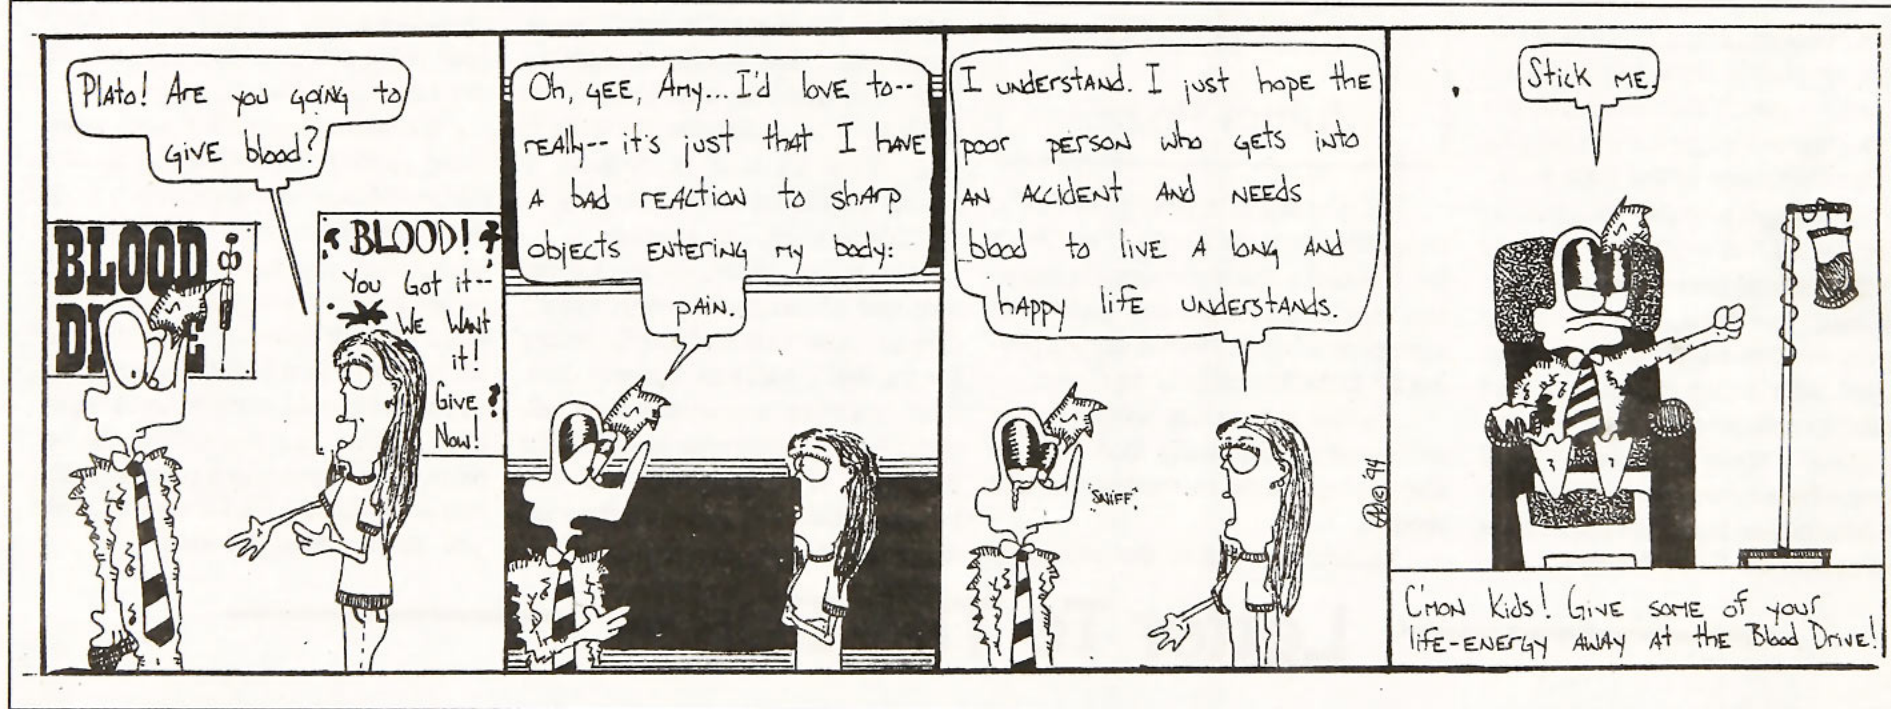 Plato! Are you going to
give blood?
BLOOD
D E
BLOOD!
You Got it--
We Want
it!
Give
Now!
Oh, gee, Amy... I'd love to--
really-- it's just that I have
a bad reaction to sharp
objects entering my body:
pain.
I understand. I just hope the
poor person who gets into
an accident and needs
blood to live a long and
happy life understands.
*SNIFF*
94
Stick me.
C'mon Kids! Give some of your
life-energy away at the Blood Drive!